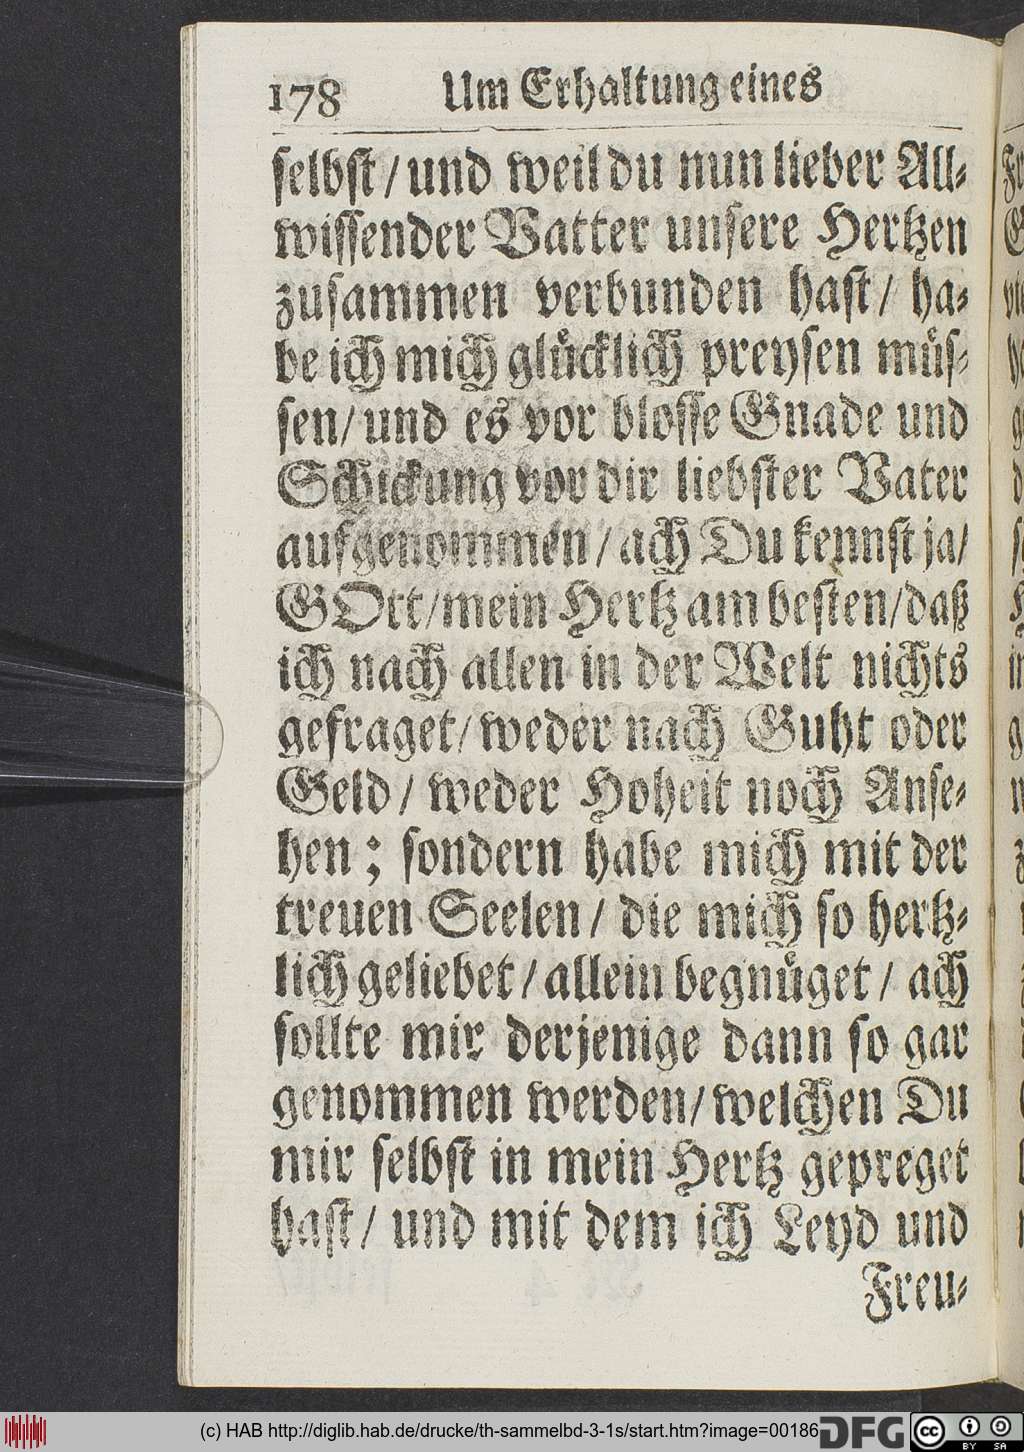 178 Um Erhaltung eines
selbst / und weil du nun lieber All-
wissender Vatter unsere Hertzen
zusammen verbunden hast / ha-
be ich mich glücklich preysen müs-
sen / und es vor blosse Gnade und
Schickung vor dir liebster Vater
aufgenommen / ach Du kennst ja /
GOtt / mein Hertz am besten / daß
ich nach allen in der Welt nichts
gefraget / weder nach Guht oder
Geld / weder Hoheit noch Anse-
hen ; sondern habe mich mit der
treuen Seelen / die mich so hertz-
lich geliebet / allein begnüget / ach
sollte mir derjenige dann so gar
genommen werden / welchen Du
mir selbst in mein Hertz gepreget
hast / und mit dem ich Leyd und
Freu-
(c) HAB http://diglib.hab.de/drucke/th-sammelbd-3-1s/start.htm?image=00186
DFG
cc BY SA